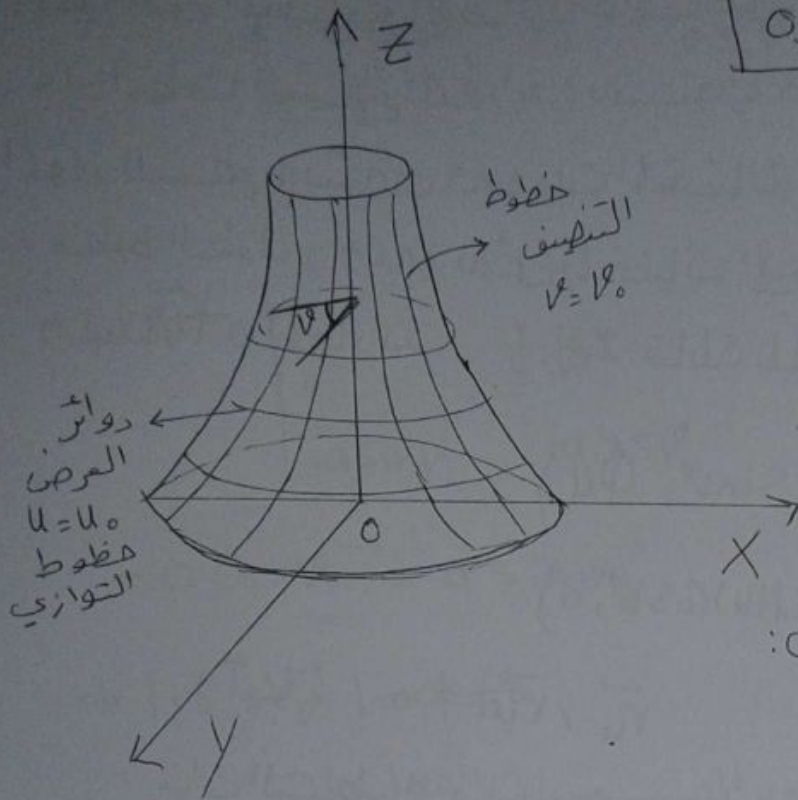 Z
خطوط
التنصيف
v = v₀
v
دوائر
العرض
u = u₀
خطوط
التوازي
O
X
y